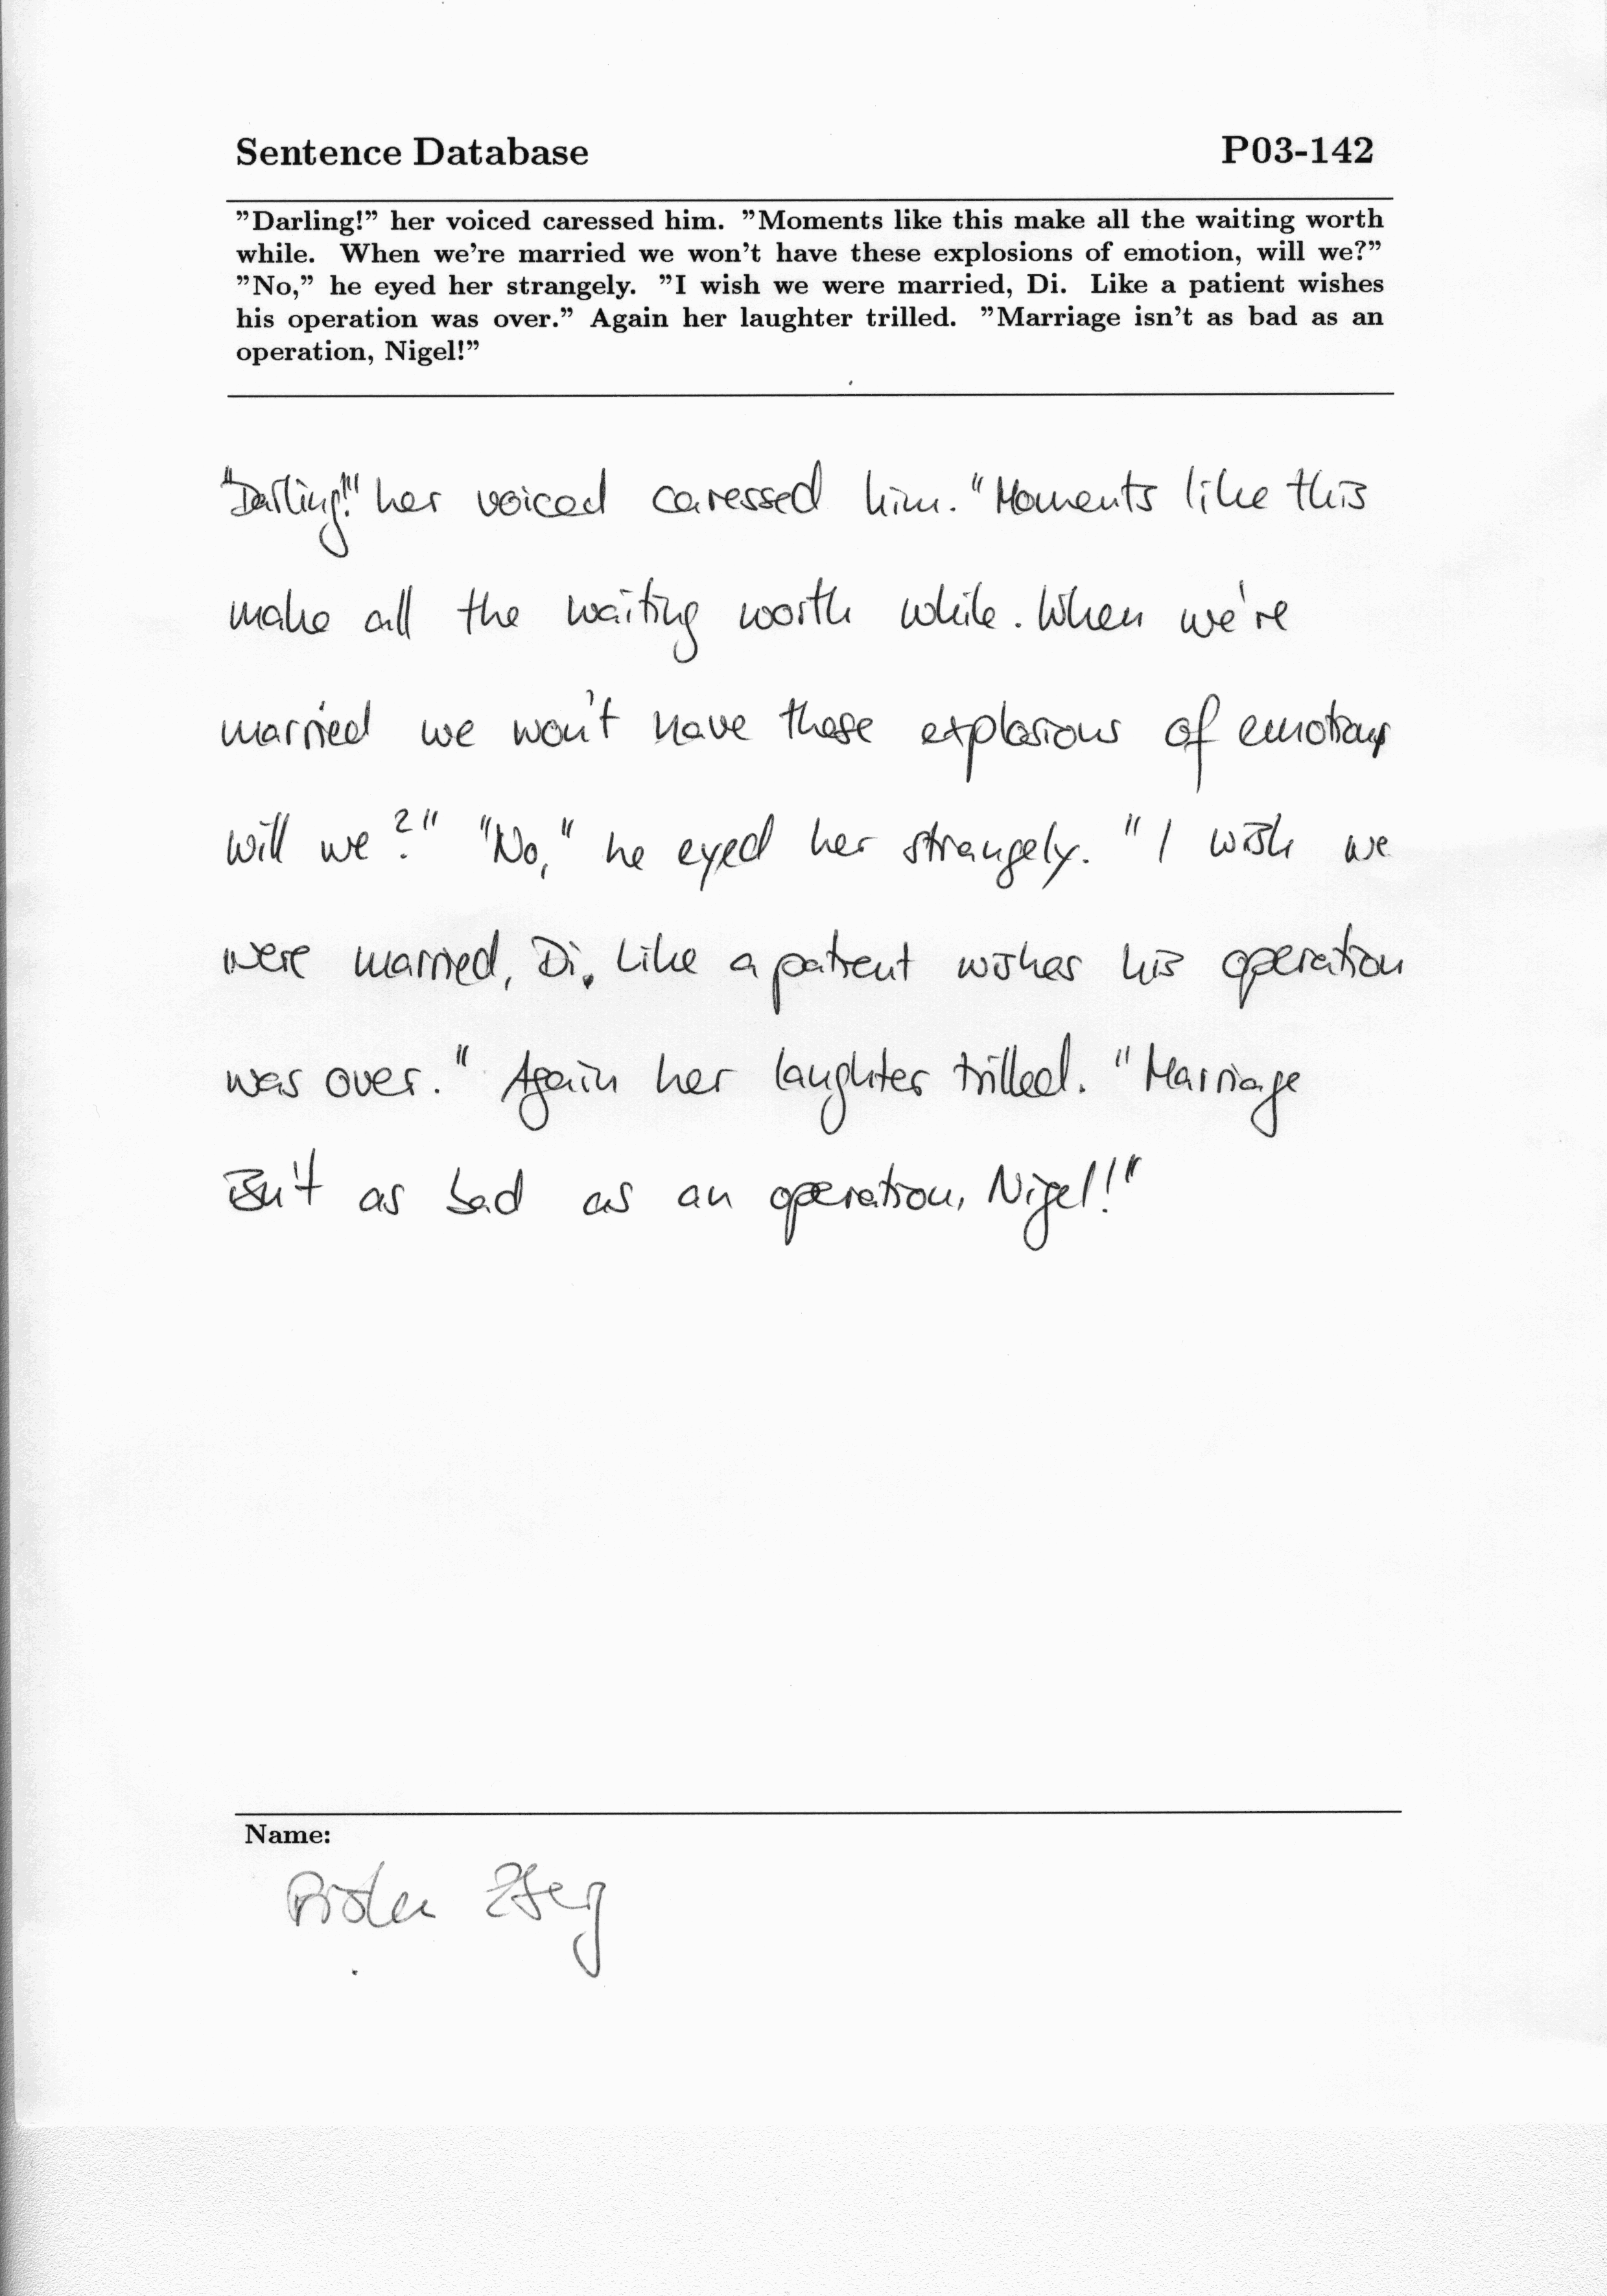 Sentence Database P03-142
"Darling!" her voiced caressed him. "Moments like this make all the waiting worth
while. When we're married we won't have these explosions of emotion, will we?"
"No," he eyed her strangely. "I wish we were married, Di. Like a patient wishes
his operation was over." Again her laughter trilled. "Marriage isn't as bad as an
operation, Nigel!"
"Darling!" her voiced caressed him. "Moments like this
make all the waiting worth while. When we're
married we won't have these explosions of emotion,
will we?" "No," he eyed her strangely. "I wish we
were married, Di. Like a patient wishes his operation
was over." Again her laughter trilled. "Marriage
isn't as bad as an operation, Nigel!"
Name: